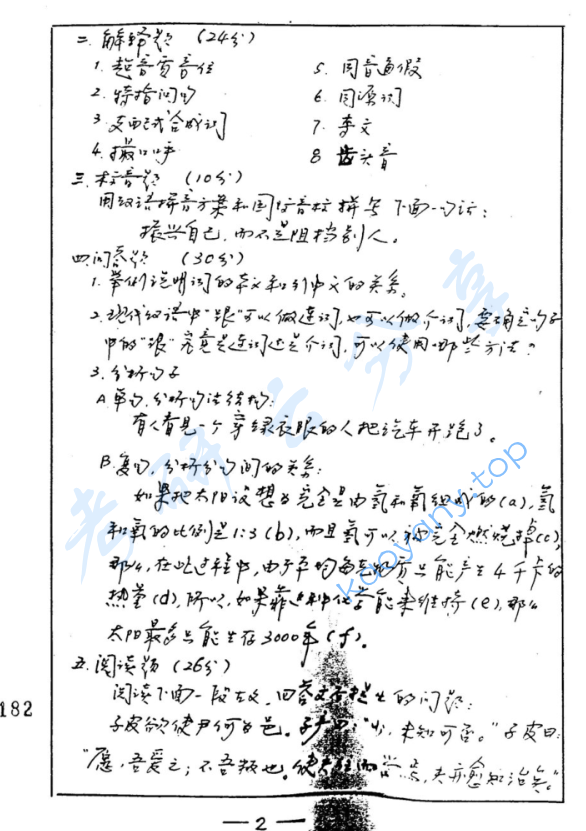 二. 解释题 (24分)
1. 超音质音位 5. 同音通假
2. 特指问句 6. 同源词
3. 支配式合成词 7. 李文
4. 撮口呼 8 齿头音
三. 标音题 (10分)
用汉语拼音方案和国际音标拼写下面一句话:
振兴自己, 而不是阻挡别人。
四. 问答题 (30分)
1. 举例说明词的本义和引申义的关系。
2. 现代汉语中"跟"可以做连词, 也可以做介词, 要确定句子
中的"跟"究竟是连词还是介词, 可以使用哪些方法?
3. 分析句子
A. 单句, 分析句法结构:
有人看见一个穿绿衣服的人把汽车开跑了。
B. 复句, 分析分句间的关系:
如果把太阳设想为完全是由氢和氧组成的(a), 氢
和氧的比例是1:3 (b), 而且氢可以被完全燃烧掉(c),
那么, 在此过程中, 由于平均每克物质只能产生4千卡的
热量(d), 所以, 如果靠这种化学能来维持(e), 那么
太阳最多只能生存3000年(f)。
五. 阅读题 (26分)
阅读下面一段古文, 回答文后提出的问题:
子皮欲使尹何为邑。子产曰:"少, 未知可否。"子皮曰:
"愿, 吾爱之; 不吾叛也。使夫往而学焉, 夫亦愈知治矣。"
182
— 2 —
考研云分享
kaoyany.top